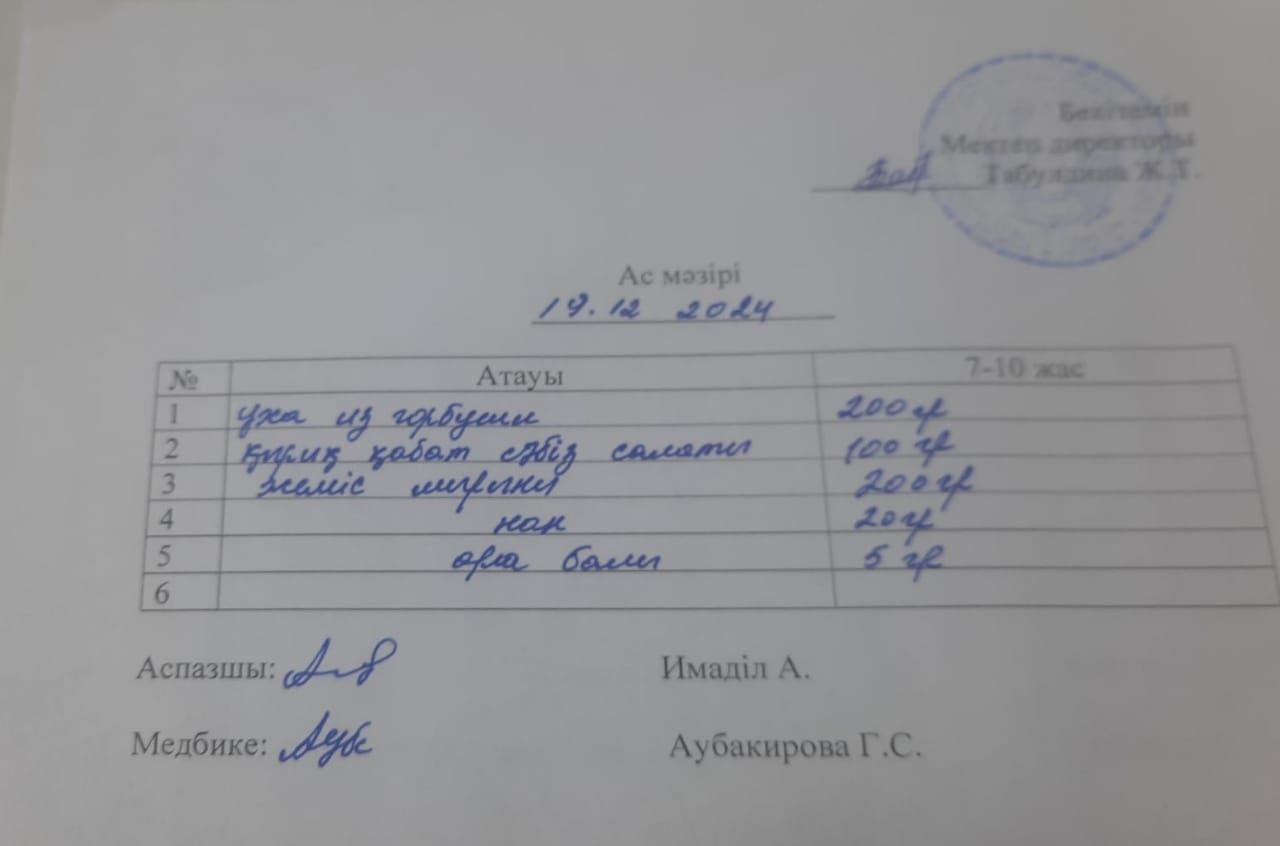 Бекітемін
Мектеп директоры
Табулдина Ж.Т.
Ас мәзірі
19.12 2024
№ Атауы 7-10 жас
1 уха из горбуши 200 гр
2 қырық қабат сәбіз салаты 100 гр
3 жеміс 200 гр
4 нан 20 гр
5 ара балы 5 гр
6
Аспазшы: Имаділ А.
Медбике: Аубакирова Г.С.